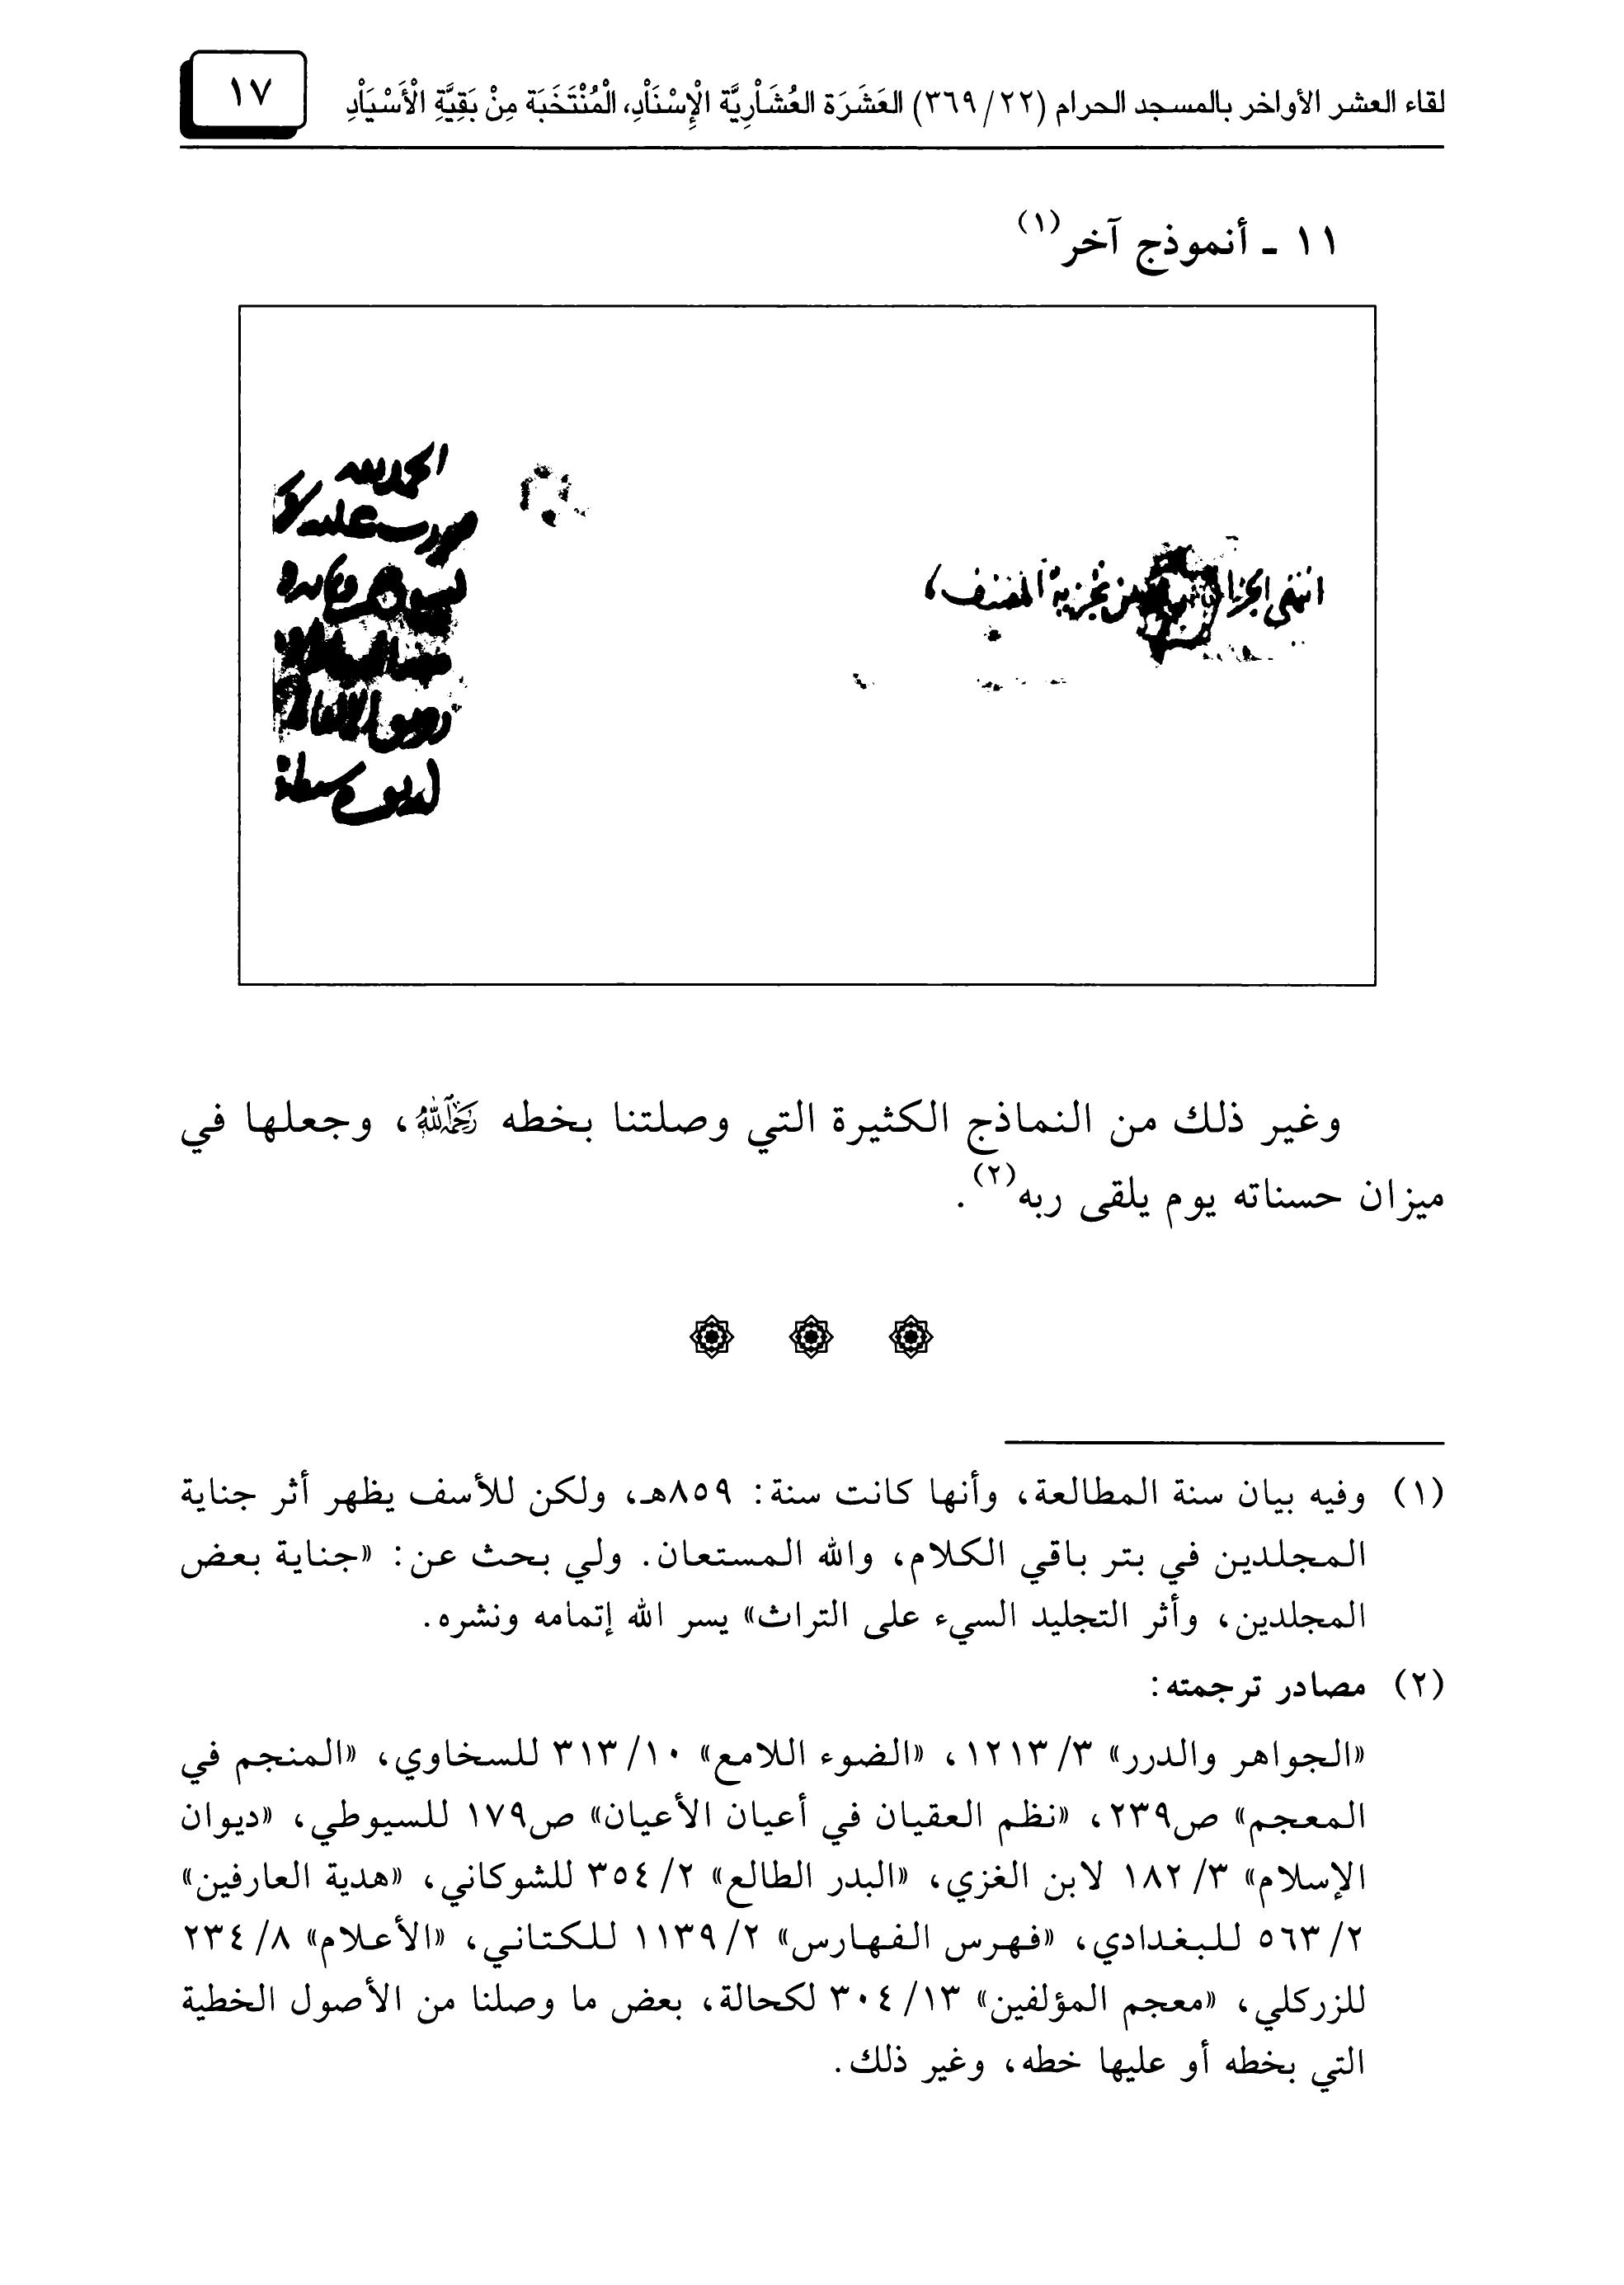 لقاء العشر الأواخر بالمسجد الحرام (٣٦٩/٢٢) العَشَرَة العُشَاْرِيَّة الْإِسْنَاْدِ، الْمُنْتَخَبَة مِنْ بَقِيَّةِ الْأَسْيَاْدِ
١٧
١١ ـ أنموذج آخر(١)
الحمد لله
انتهى الجزء من تجزية المصنف،
وغير ذلك من النماذج الكثيرة التي وصلتنا بخطه رَحِمَهُ اللَّهُ، وجعلها في
ميزان حسناته يوم يلقى ربه(٢).
(١) وفيه بيان سنة المطالعة، وأنها كانت سنة: ٨٥٩هـ، ولكن للأسف يظهر أثر جناية
المجلدين في بتر باقي الكلام، والله المستعان. ولي بحث عن: «جناية بعض
المجلدين، وأثر التجليد السيء على التراث» يسر الله إتمامه ونشره.
(٢) مصادر ترجمته:
«الجواهر والدرر» ١٢١٣/٣، «الضوء اللامع» ٣١٣/١٠ للسخاوي، «المنجم في
المعجم» ص٢٣٩، «نظم العقيان في أعيان الأعيان» ص١٧٩ للسيوطي، «ديوان
الإسلام» ١٨٢/٣ لابن الغزي، «البدر الطالع» ٣٥٤/٢ للشوكاني، «هدية العارفين»
٥٦٣/٢ للبغدادي، «فهرس الفهارس» ١١٣٩/٢ للكتاني، «الأعلام» ٢٣٤/٨
للزركلي، «معجم المؤلفين» ٣٠٤/١٣ لكحالة، بعض ما وصلنا من الأصول الخطية
التي بخطه أو عليها خطه، وغير ذلك.